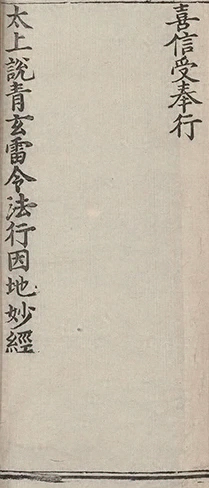 喜信受奉行
太上說青玄雷令法行因地妙經